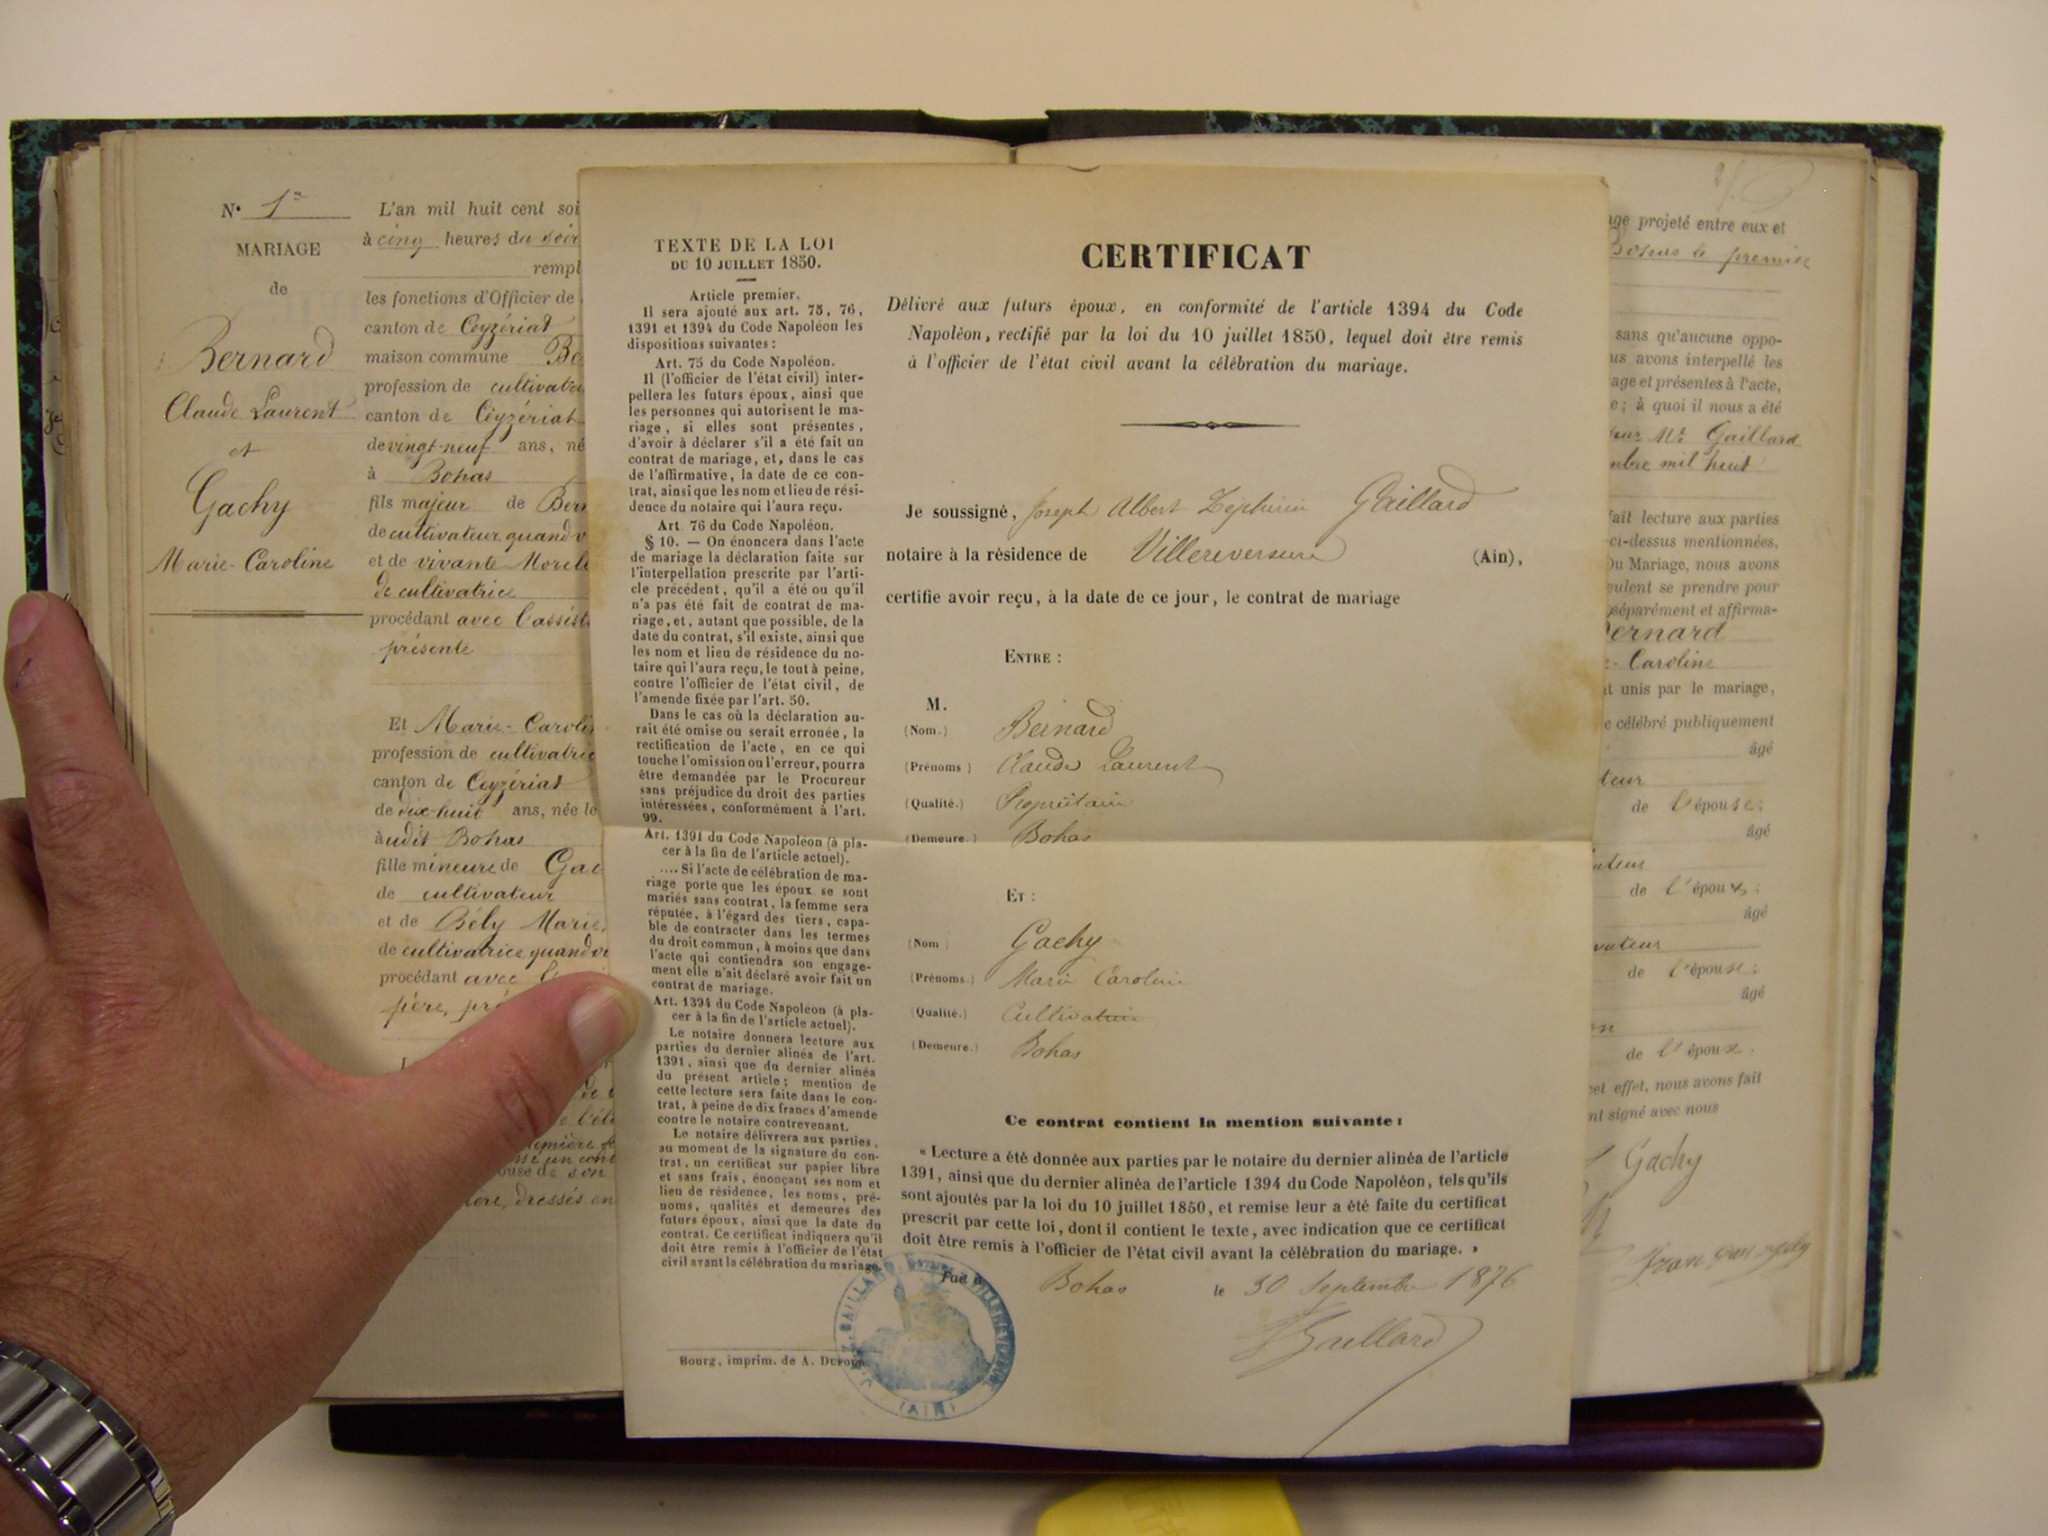 N° 1er
MARIAGE
de
Bernard
Claude Laurent
et
Gachy
Marie-Caroline
L'an mil huit cent soi
à cinq heures du soir
rempl
les fonctions d'Officier de
canton de Ceyzériat
maison commune Bo
profession de cultivate
canton de Ceyzériat
de vingt-neuf ans, né
à Bohas
fils majeur de Bern
de cultivateur quand v
et de vivante Morel
de cultivatrice
procédant avec l'assist
présente
Et Marie-Carolin
profession de cultivatric
canton de Ceyzériat
de dix-huit ans, née le
audit Bohas
fille mineure de Gac
de cultivateur
et de Bély Marie
de cultivatrice quand v
procédant avec
père, pré
TEXTE DE LA LOI
DU 10 JUILLET 1850.
Article premier.
Il sera ajouté aux art. 75, 76,
1391 et 1394 du Code Napoléon les
dispositions suivantes :
Art. 75 du Code Napoléon.
Il (l'officier de l'état civil) inter-
pellera les futurs époux, ainsi que
les personnes qui autorisent le ma-
riage, si elles sont présentes,
d'avoir à déclarer s'il a été fait un
contrat de mariage, et, dans le cas
de l'affirmative, la date de ce con-
trat, ainsi que les nom et lieu de rési-
dence du notaire qui l'aura reçu.
Art. 76 du Code Napoléon.
§ 10. — On énoncera dans l'acte
de mariage la déclaration faite sur
l'interpellation prescrite par l'arti-
cle précédent, qu'il a été ou qu'il
n'a pas été fait de contrat de ma-
riage, et, autant que possible, de la
date du contrat, s'il existe, ainsi que
les nom et lieu de résidence du no-
taire qui l'aura reçu, le tout à peine,
contre l'officier de l'état civil, de
l'amende fixée par l'art. 50.
Dans le cas où la déclaration au-
rait été omise ou serait erronée, la
rectification de l'acte, en ce qui
touche l'omission ou l'erreur, pourra
être demandée par le Procureur
sans préjudice du droit des parties
intéressées, conformément à l'art.
99.
Art. 1391 du Code Napoléon (à pla-
cer à la fin de l'article actuel).
.... Si l'acte de célébration de ma-
riage porte que les époux se sont
mariés sans contrat, la femme sera
réputée, à l'égard des tiers, capa-
ble de contracter dans les termes
du droit commun, à moins que dans
l'acte qui contiendra son engage-
ment elle n'ait déclaré avoir fait un
contrat de mariage.
Art. 1394 du Code Napoléon (à pla-
cer à la fin de l'article actuel).
Le notaire donnera lecture aux
parties du dernier alinéa de l'art.
1391, ainsi que du dernier alinéa
du présent article ; mention de
cette lecture sera faite dans le con-
trat, à peine de dix francs d'amende
contre le notaire contrevenant.
Le notaire délivrera aux parties,
au moment de la signature du con-
trat, un certificat sur papier libre
et sans frais, énonçant ses nom et
lieu de résidence, les noms, pré-
noms, qualités et demeures des
futurs époux, ainsi que la date du
contrat. Ce certificat indiquera qu'il
doit être remis à l'officier de l'état
civil avant la célébration du mariage.
Bourg, imprim. de A. Dufour
CERTIFICAT
Délivré aux futurs époux, en conformité de l'article 1394 du Code
Napoléon, rectifié par la loi du 10 juillet 1850, lequel doit être remis
à l'officier de l'état civil avant la célébration du mariage.
Je soussigné, Joseph Albert Zéphirin Gaillard
notaire à la résidence de Villereversure (Ain),
certifie avoir reçu, à la date de ce jour, le contrat de mariage
ENTRE :
M.
(Nom.) Bernard
(Prénoms) Claude Laurent
(Qualité.) Propriétaire
(Demeure.) Bohas
ET :
(Nom) Gachy
(Prénoms.) Marie Caroline
(Qualité.) Cultivatrice
(Demeure.) Bohas
Ce contrat contient la mention suivante :
« Lecture a été donnée aux parties par le notaire du dernier alinéa de l'article
1391, ainsi que du dernier alinéa de l'article 1394 du Code Napoléon, tels qu'ils
sont ajoutés par la loi du 10 juillet 1850, et remise leur a été faite du certificat
prescrit par cette loi, dont il contient le texte, avec indication que ce certificat
doit être remis à l'officier de l'état civil avant la célébration du mariage. »
Fait à Bohas le 30 Septembre 1876
Gaillard
(AIN)
age projeté entre eux et
Bohas le premier
sans qu'aucune oppo-
us avons interpellé les
age et présentes à l'acte,
e ; à quoi il nous a été
Mr Gaillard
mbre mil huit
fait lecture aux parties
ci-dessus mentionnées,
Du Mariage, nous avons
eulent se prendre pour
séparément et affirma-
Bernard
Caroline
t unis par le mariage,
e célébré publiquement
âgé
teur
de l'épouse ;
âgé
ateur
de l'épouse ;
âgé
vateur
de l'épouse ;
âgé
de l'épouse.
cet effet, nous avons fait
nt signé avec nous
Gachy